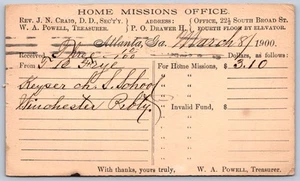 HOME MISSIONS OFFICE.
REV. J. N. CRAIG, D. D., SECT'Y. ADDRESS: OFFICE, 22½ SOUTH BROAD ST.
W. A. POWELL, TREASURER. P. O. DRAWER H. FOURTH FLOOR BY ELEVATOR.
Atlanta, Ga. March 8/ 1900.
Received Three 10/100 Dollars, as follows:
From For Home Missions $ 3.10
Keyser ch. S. School
Winchester Pbty. Invalid Fund, "
With thanks, yours truly, W. A. POWELL, Treasurer.